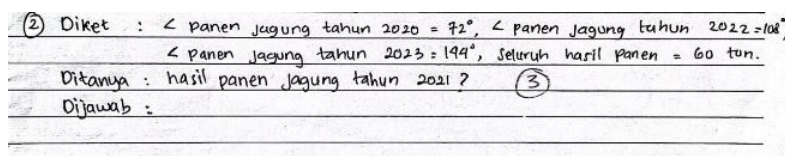 ② Diket : < panen jagung tahun 2020 = 72°, < panen Jagung tahun 2022 = 108°,
< panen jagung tahun 2023 = 144°, seluruh hasil panen = 60 ton.
Ditanya : hasil panen jagung tahun 2021 ? ③
Dijawab :